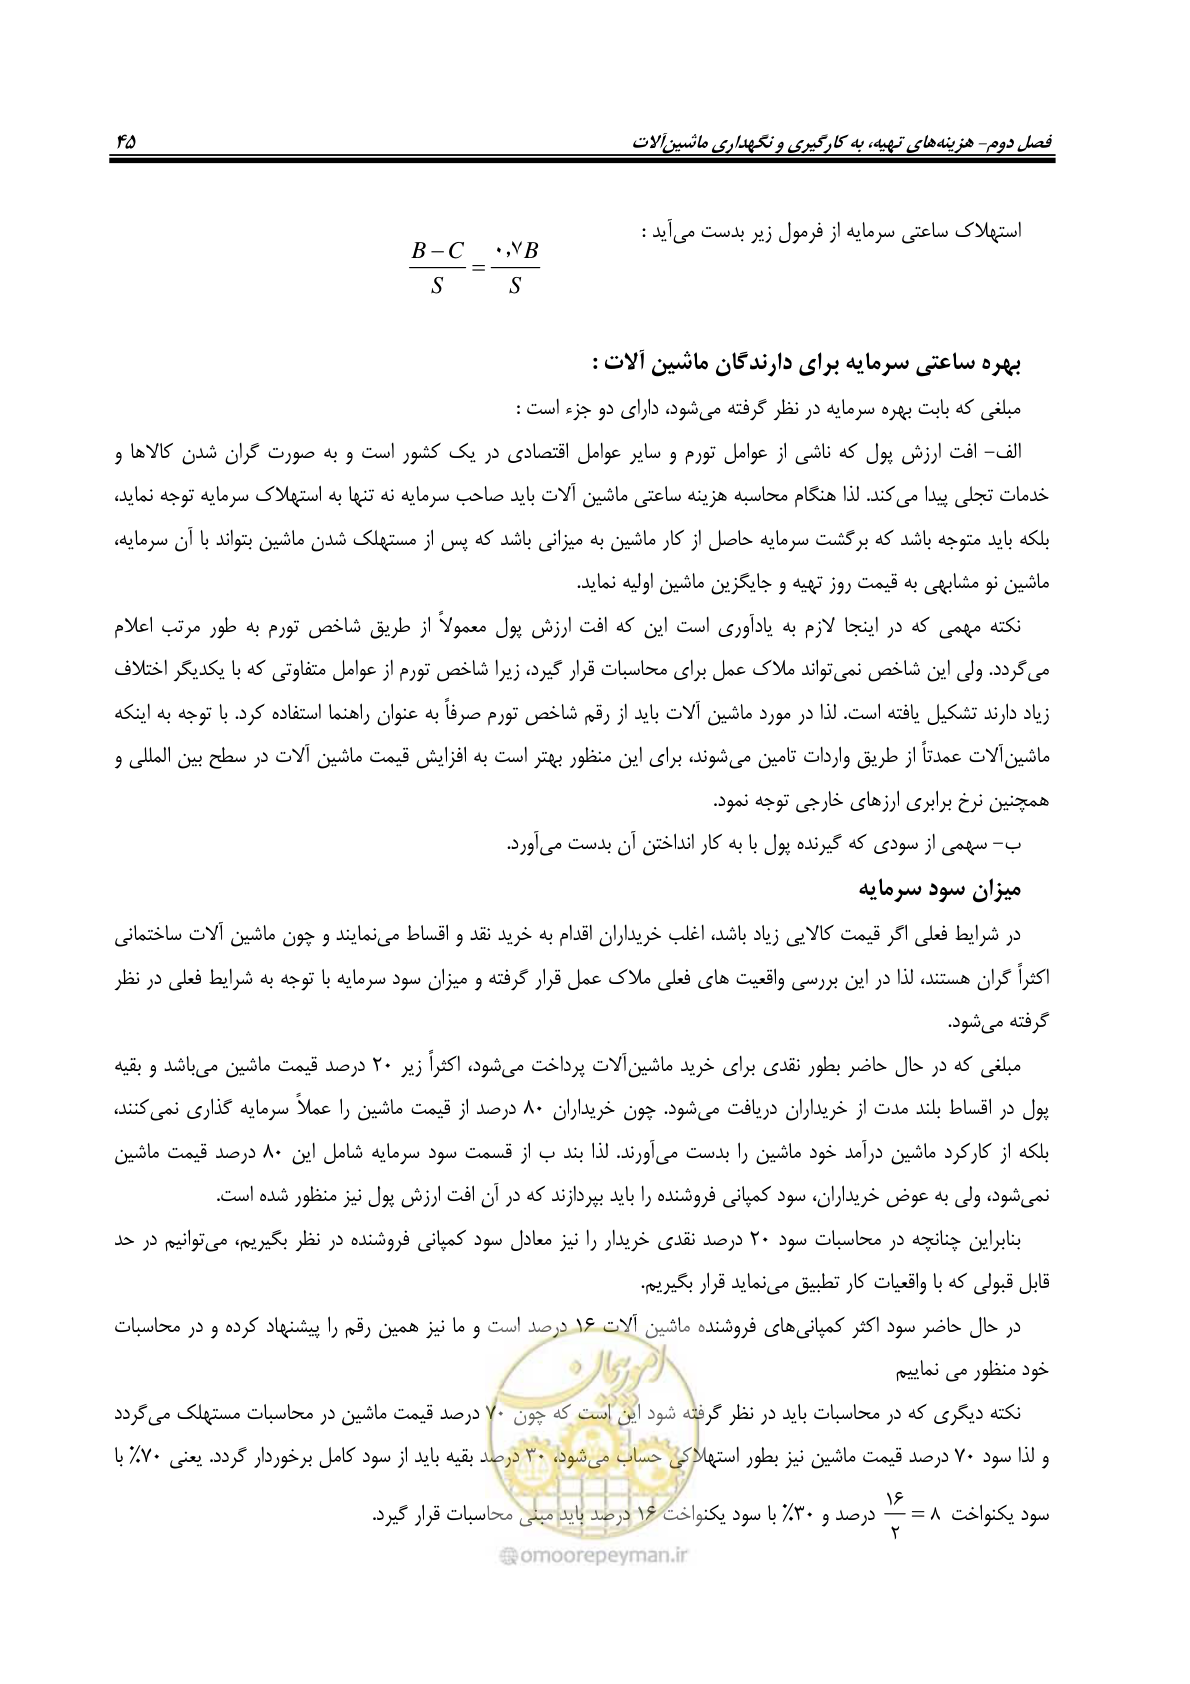 فصل دوم- هزینه‌های تهیه، به کارگیری و نگهداری ماشین‌آلات ۴۵
استهلاک ساعتی سرمایه از فرمول زیر بدست می‌آید :
(B – C)/S = ۰٫۷B/S
بهره ساعتی سرمایه برای دارندگان ماشین آلات :
مبلغی که بابت بهره سرمایه در نظر گرفته می‌شود، دارای دو جزء است :
الف- افت ارزش پول که ناشی از عوامل تورم و سایر عوامل اقتصادی در یک کشور است و به صورت گران شدن کالاها و
خدمات تجلی پیدا می‌کند. لذا هنگام محاسبه هزینه ساعتی ماشین آلات باید صاحب سرمایه نه تنها به استهلاک سرمایه توجه نماید،
بلکه باید متوجه باشد که برگشت سرمایه حاصل از کار ماشین به میزانی باشد که پس از مستهلک شدن ماشین بتواند با آن سرمایه،
ماشین نو مشابهی به قیمت روز تهیه و جایگزین ماشین اولیه نماید.
نکته مهمی که در اینجا لازم به یادآوری است این که افت ارزش پول معمولاً از طریق شاخص تورم به طور مرتب اعلام
می‌گردد. ولی این شاخص نمی‌تواند ملاک عمل برای محاسبات قرار گیرد، زیرا شاخص تورم از عوامل متفاوتی که با یکدیگر اختلاف
زیاد دارند تشکیل یافته است. لذا در مورد ماشین آلات باید از رقم شاخص تورم صرفاً به عنوان راهنما استفاده کرد. با توجه به اینکه
ماشین‌آلات عمدتاً از طریق واردات تامین می‌شوند، برای این منظور بهتر است به افزایش قیمت ماشین آلات در سطح بین المللی و
همچنین نرخ برابری ارزهای خارجی توجه نمود.
ب- سهمی از سودی که گیرنده پول با به کار انداختن آن بدست می‌آورد.
میزان سود سرمایه
در شرایط فعلی اگر قیمت کالایی زیاد باشد، اغلب خریداران اقدام به خرید نقد و اقساط می‌نمایند و چون ماشین آلات ساختمانی
اکثراً گران هستند، لذا در این بررسی واقعیت های فعلی ملاک عمل قرار گرفته و میزان سود سرمایه با توجه به شرایط فعلی در نظر
گرفته می‌شود.
مبلغی که در حال حاضر بطور نقدی برای خرید ماشین‌آلات پرداخت می‌شود، اکثراً زیر ۲۰ درصد قیمت ماشین می‌باشد و بقیه
پول در اقساط بلند مدت از خریداران دریافت می‌شود. چون خریداران ۸۰ درصد از قیمت ماشین را عملاً سرمایه گذاری نمی‌کنند،
بلکه از کارکرد ماشین درآمد خود ماشین را بدست می‌آورند. لذا بند ب از قسمت سود سرمایه شامل این ۸۰ درصد قیمت ماشین
نمی‌شود، ولی به عوض خریداران، سود کمپانی فروشنده را باید بپردازند که در آن افت ارزش پول نیز منظور شده است.
بنابراین چنانچه در محاسبات سود ۲۰ درصد نقدی خریدار را نیز معادل سود کمپانی فروشنده در نظر بگیریم، می‌توانیم در حد
قابل قبولی که با واقعیات کار تطبیق می‌نماید قرار بگیریم.
در حال حاضر سود اکثر کمپانی‌های فروشنده ماشین آلات ۱۶ درصد است و ما نیز همین رقم را پیشنهاد کرده و در محاسبات
خود منظور می نماییم
نکته دیگری که در محاسبات باید در نظر گرفته شود این است که چون ۷۰ درصد قیمت ماشین در محاسبات مستهلک می‌گردد
و لذا سود ۷۰ درصد قیمت ماشین نیز بطور استهلاکی حساب می‌شود، ۳۰ درصد بقیه باید از سود کامل برخوردار گردد. یعنی ۷۰٪ با
سود یکنواخت ۱۶/۲ = ۸ درصد و ۳۰٪ با سود یکنواخت ۱۶ درصد باید مبنی محاسبات قرار گیرد.
امور پیمان
@omoorepeyman.ir